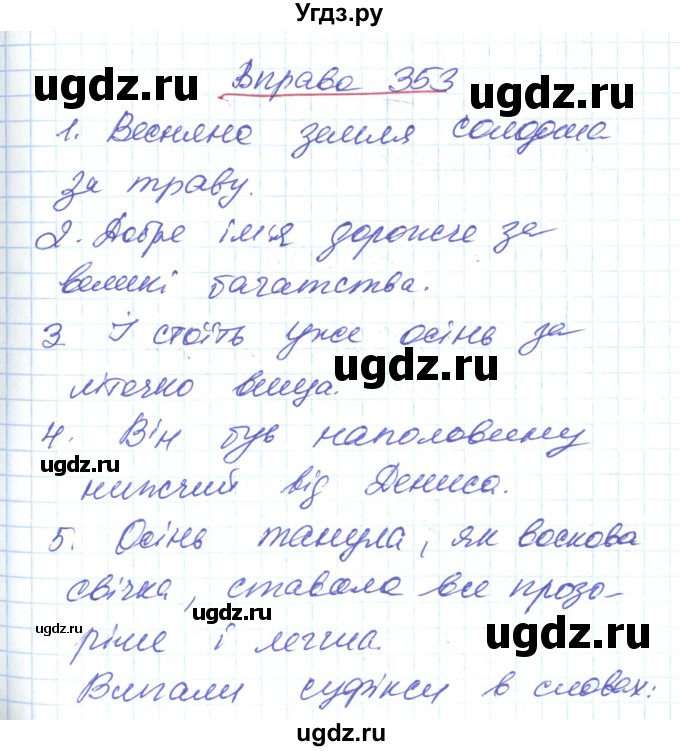 Угдз.ру
ugdz.ru
Вправа 353
ugdz.ru
1. Весняна земля солодша
за траву.
ugdz.ru
2. Добре ім'я дорожче за
великі багатства.
3 І стоїть уже осінь за
ugdz.ru
літечко вища.
4. Він був наполовину
ugdz.ru
нижчий від Дениса.
5. Осінь танула, як воскова
свічка, ставала все прозо-
ugdz.ru
ugdz.ru
ugdz.ru
ріше і легша.
Вжили суфікси в словах:
ugdz.ru